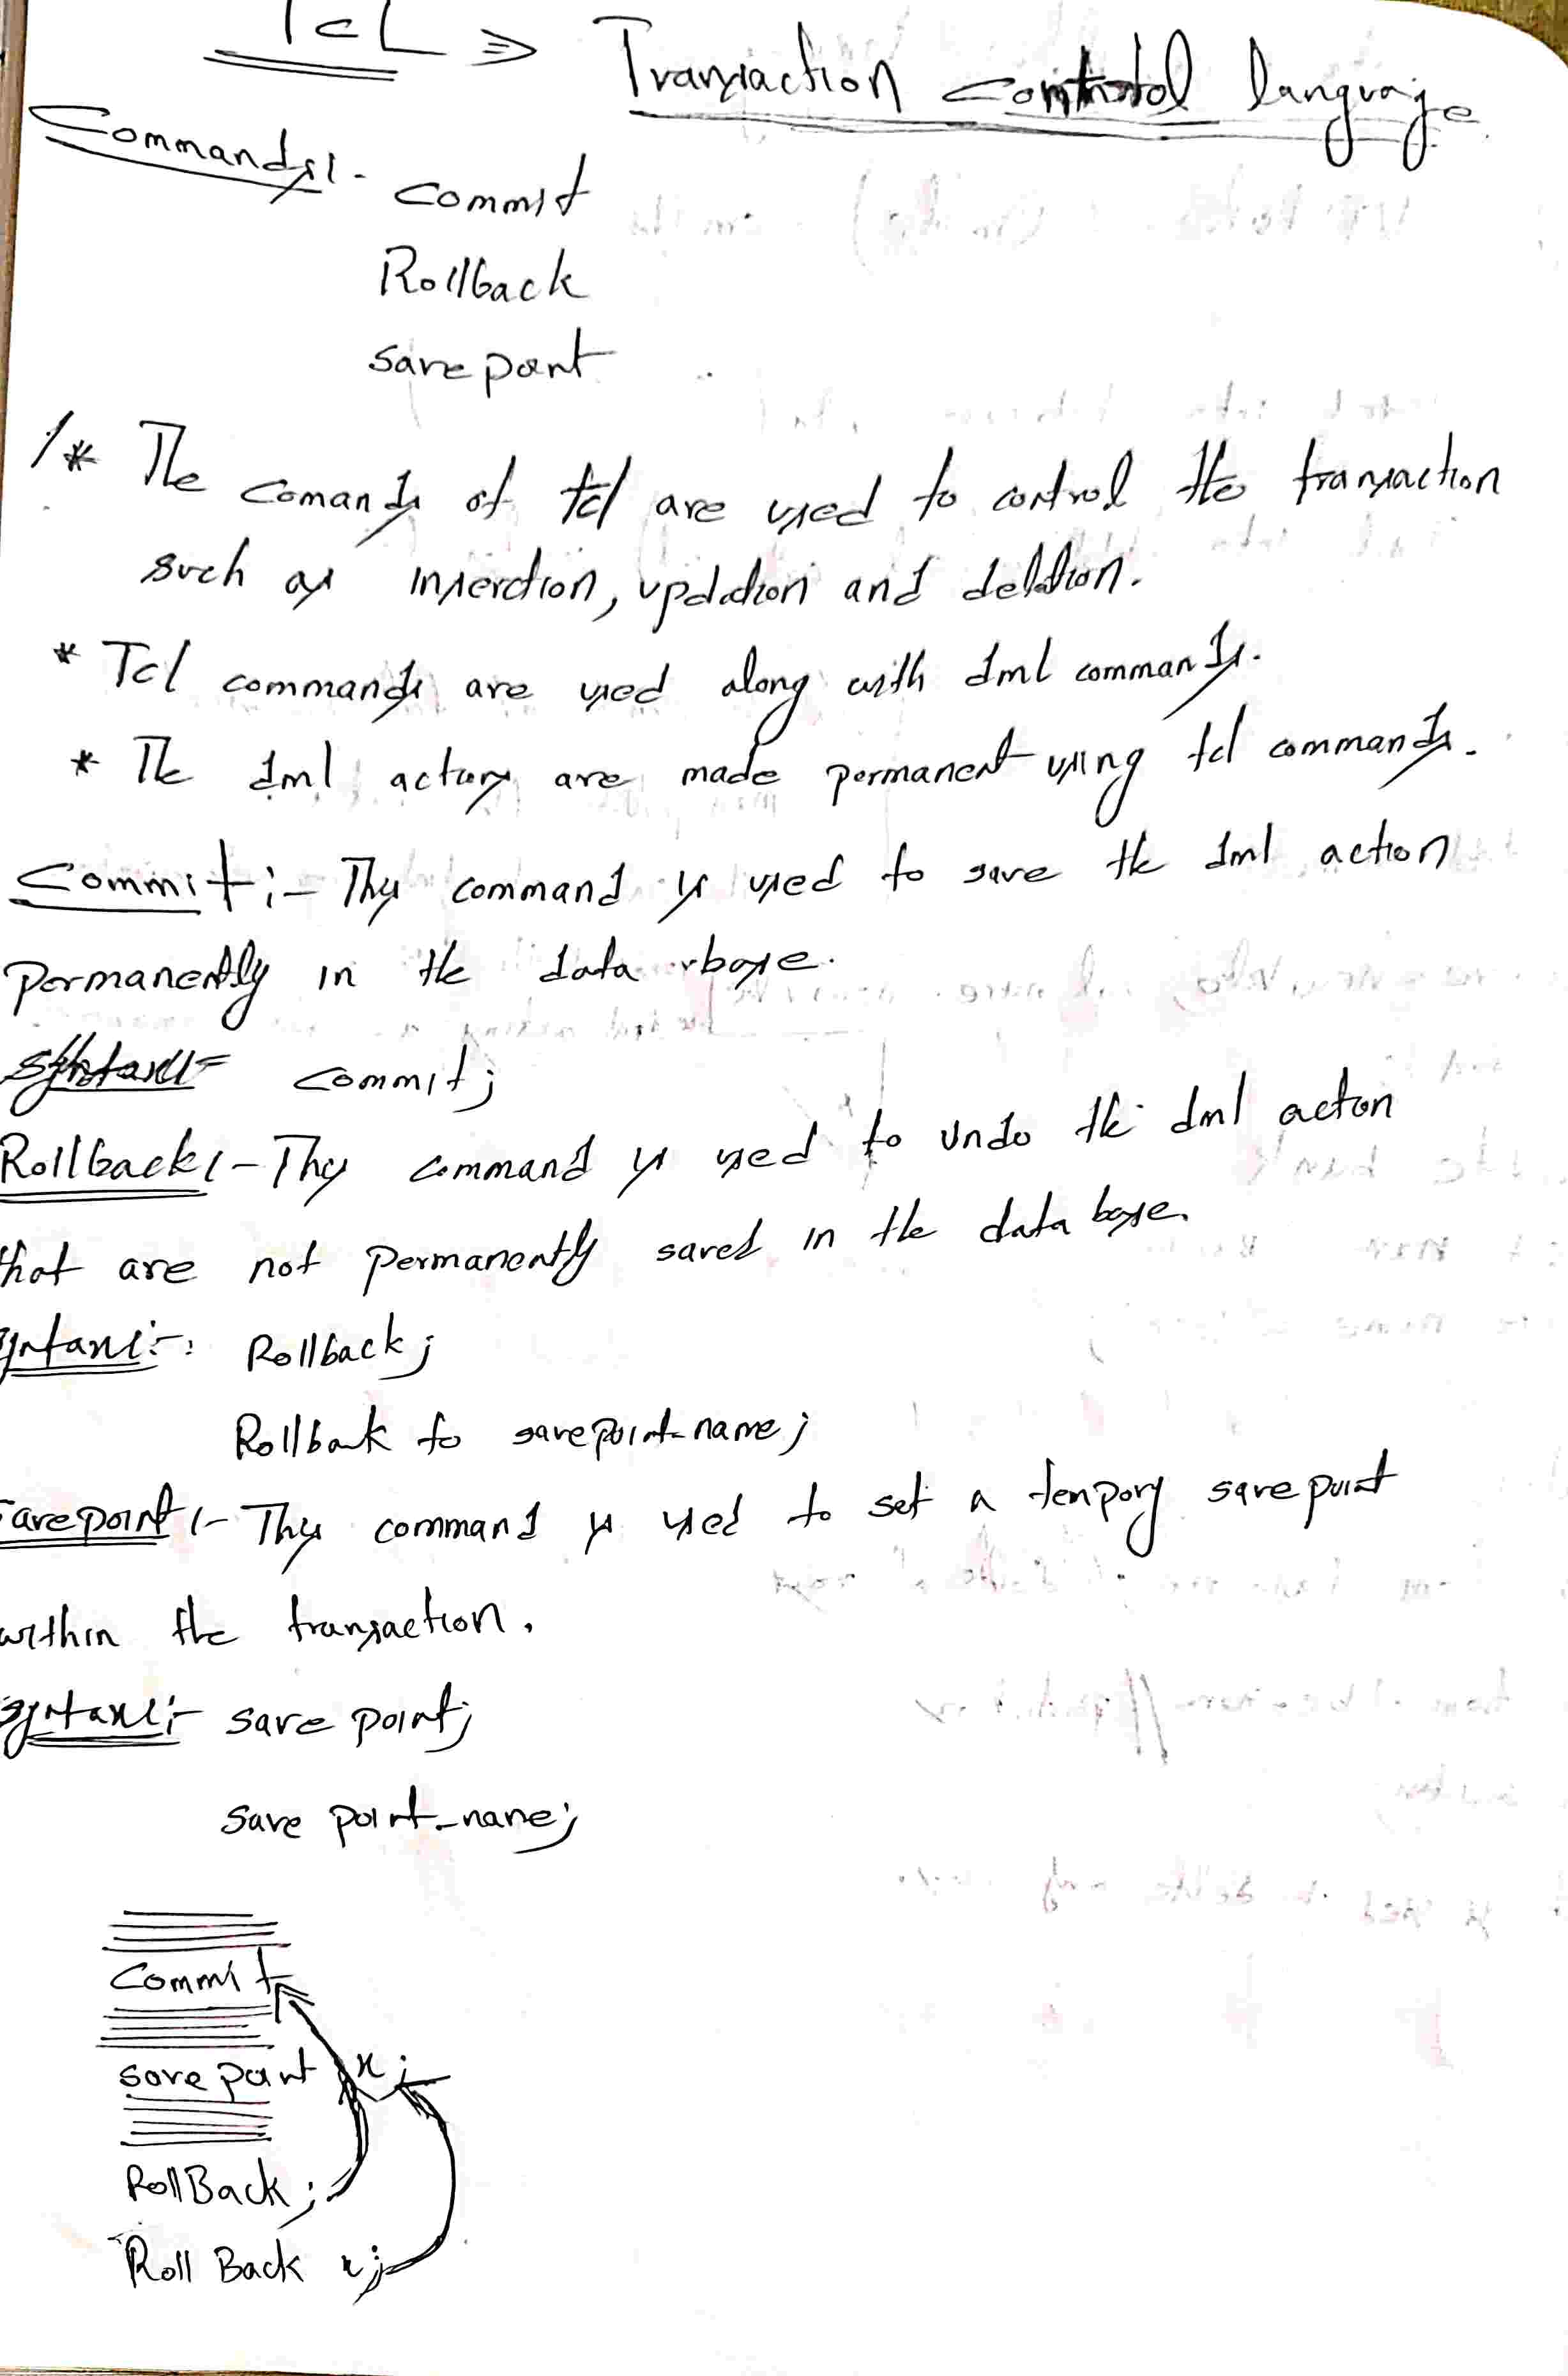 TCL => Transaction control language
Commands:-
commit
Rollback
save point
/* The comands of tcl are used to control the transaction
such as insertion, updation and deletion.
* Tcl commands are used along with dml commands.
* The dml actions are made permanent using tcl commands.
Commit:- This command is used to save the dml action
permanently in the data base.
Syntax:- commit;
Rollback:- This command is used to undo the dml action
that are not permanently saved in the data base.
Syntax:- Rollback;
Rollback to savepoint-name;
Savepoint:- This command is used to set a tempory save point
within the transaction.
Syntax:- save point;
save point-name;
Commit
save point x;
RollBack;
Roll Back x;